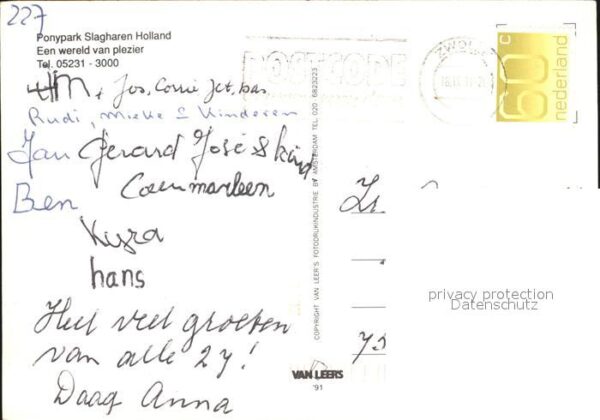 227
Ponypark Slagharen Holland
Een wereld van plezier
Tel. 05231 - 3000
Jos, Corrie Jet, bas
Rudi, Mieke & Kinderen
Jan Gerard José & kind
Coen marleen
Ben
Kyra
hans
Heel veel groeten
van alle 27!
Daag Anna
POSTCODE
ZWOLLE
60 c
nederland
COPYRIGHT VAN LEER'S FOTODRUKINDUSTRIE BV AMSTERDAM TEL. 020 - 6823223
VAN LEERS
'91
privacy protection
Datenschutz